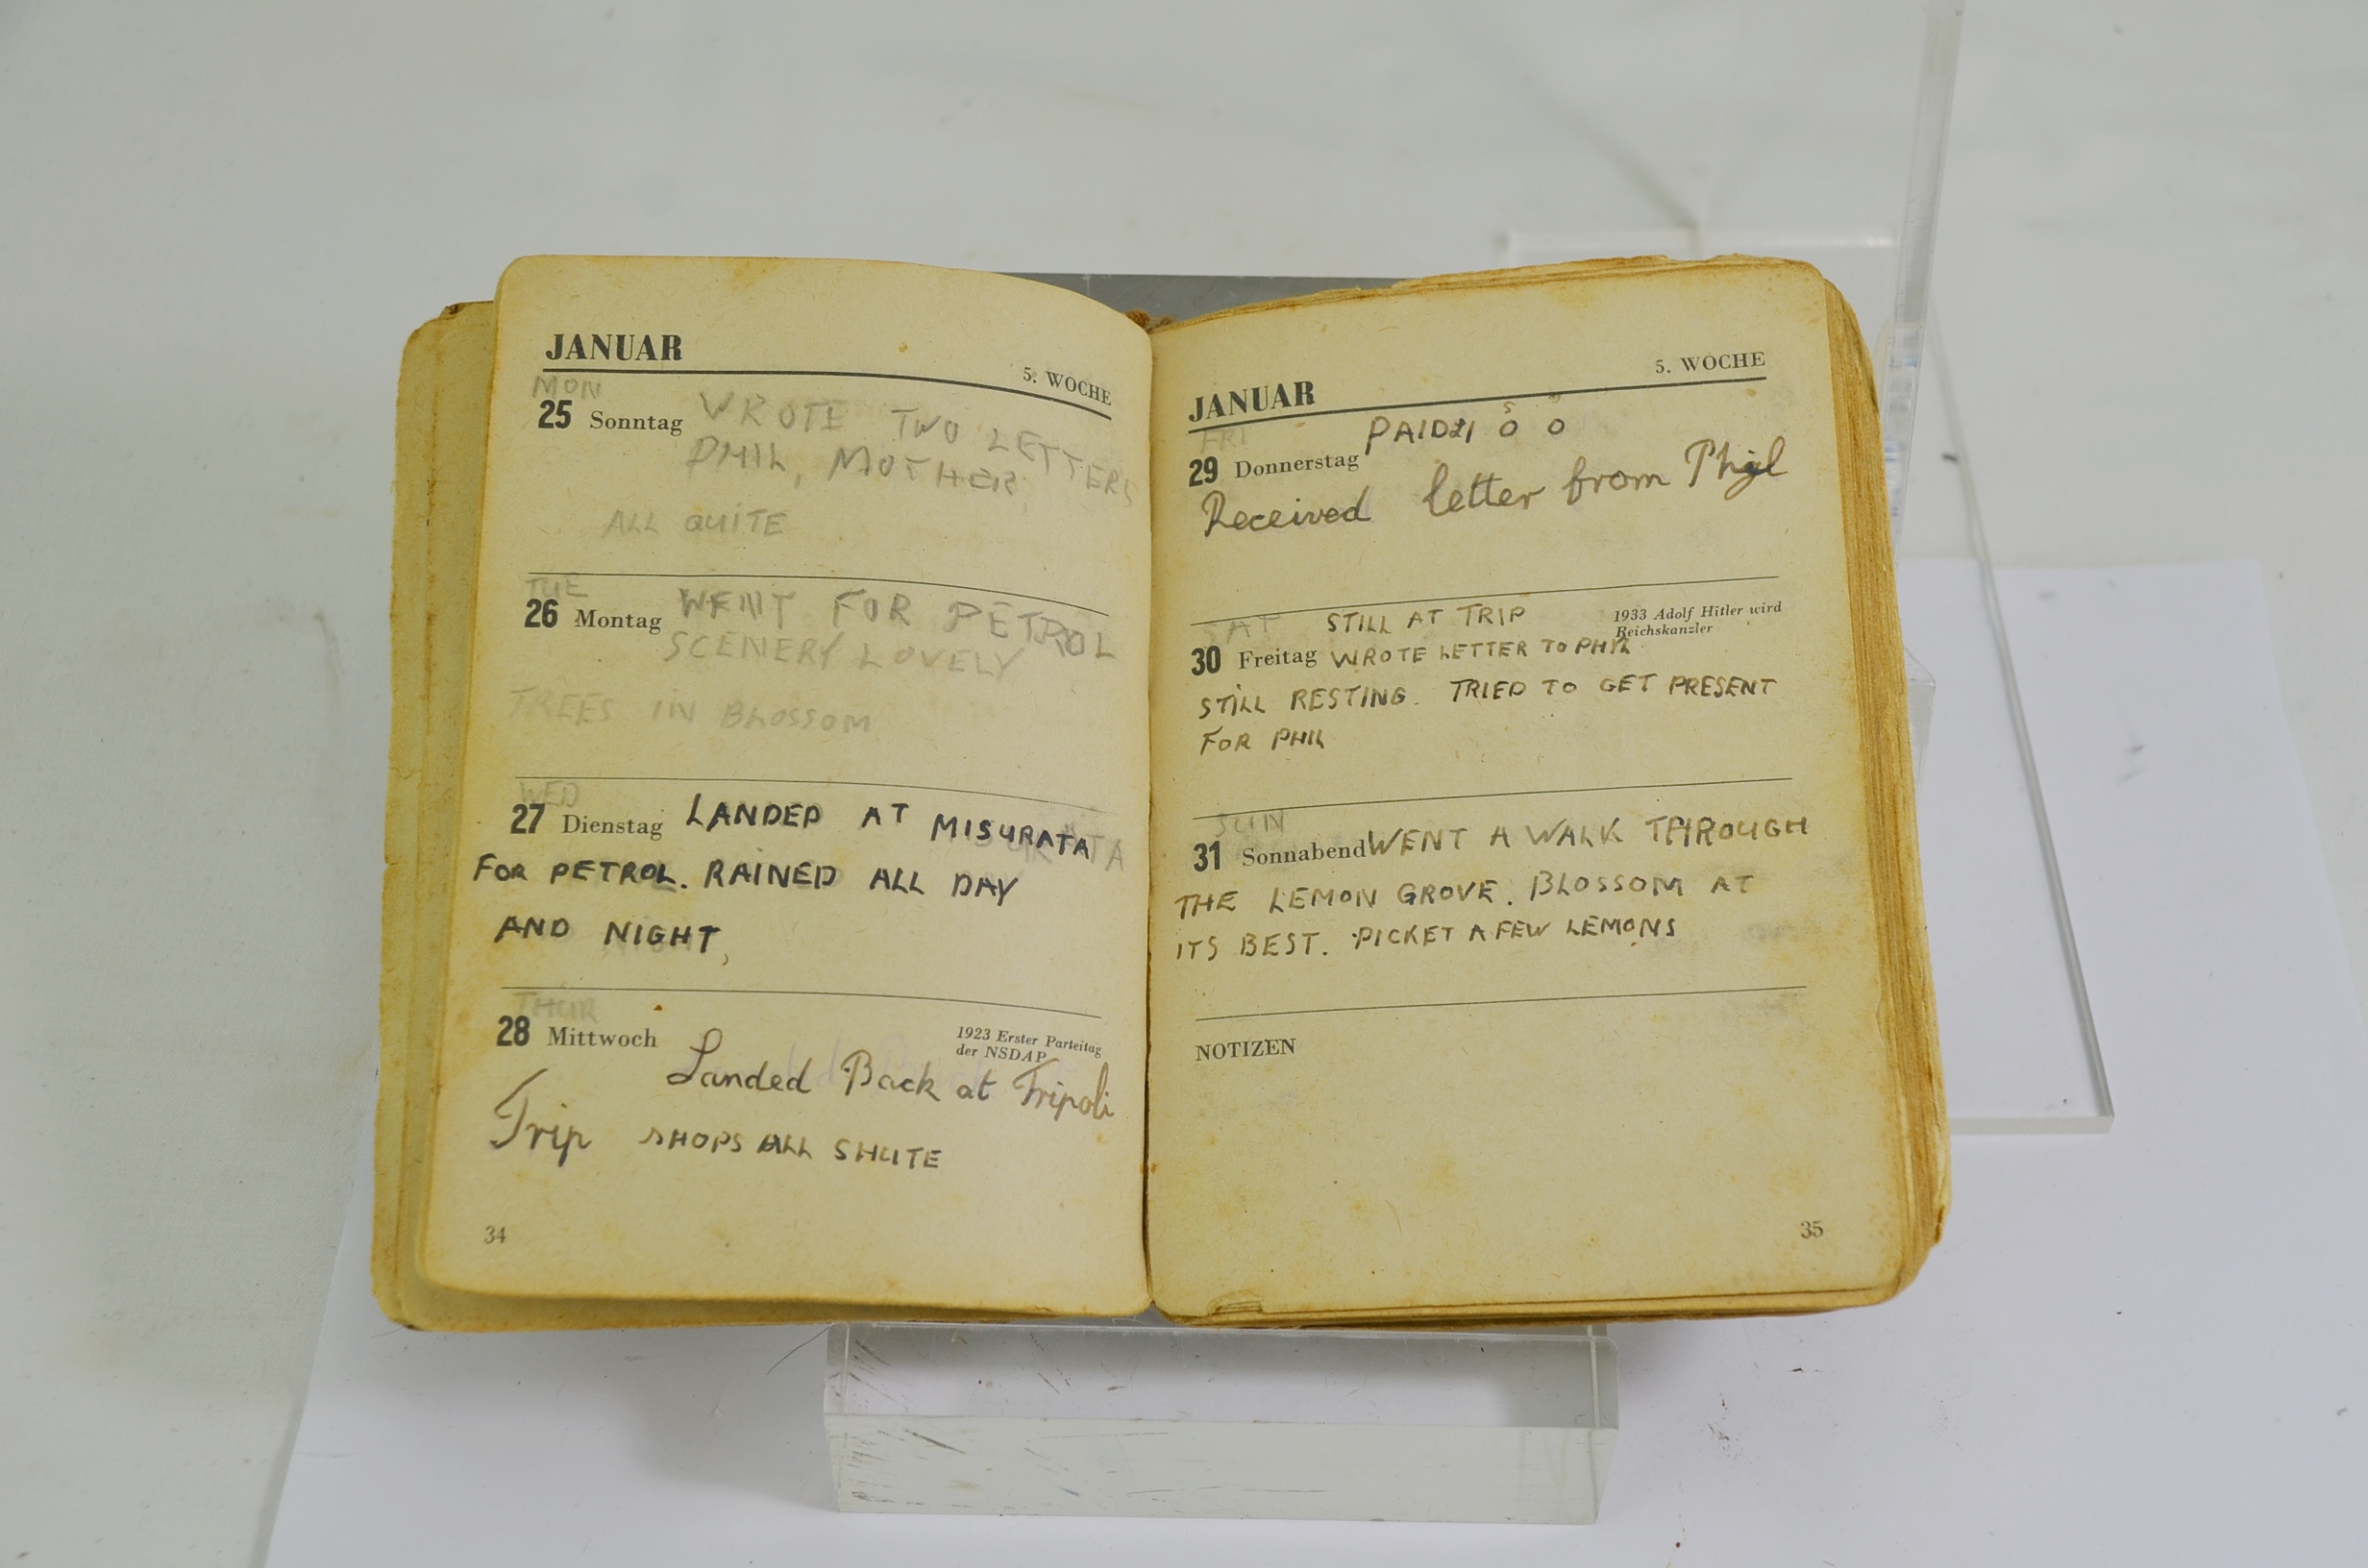 JANUAR
5. WOCHE
MON
25 Sonntag WROTE TWO LETTERS
PHIL, MOTHER
ALL QUITE
TUE
26 Montag WENT FOR PETROL
SCENERY LOVELY
TREES IN BLOSSOM
WED
27 Dienstag LANDED AT MISURATA
FOR PETROL. RAINED ALL DAY
AND NIGHT,
THUR
28 Mittwoch
1923 Erster Parteitag
der NSDAP
Landed Back at Tripoli
Trip SHOPS ALL SHUTE
34
JANUAR
5. WOCHE
FRI
PAID £1 0 0
29 Donnerstag
Received letter from Phyl
SAT STILL AT TRIP
1933 Adolf Hitler wird
Reichskanzler
30 Freitag WROTE LETTER TO PHYL
STILL RESTING. TRIED TO GET PRESENT
FOR PHIL
SUN
31 Sonnabend WENT A WALK THROUGH
THE LEMON GROVE. BLOSSOM AT
ITS BEST. PICKET A FEW LEMONS
NOTIZEN
35